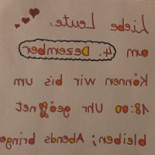 Liebe Leute,
am 4. Dezember
Können wir bis um
18:00 Uhr geöffnet
bleiben; Abends bringe